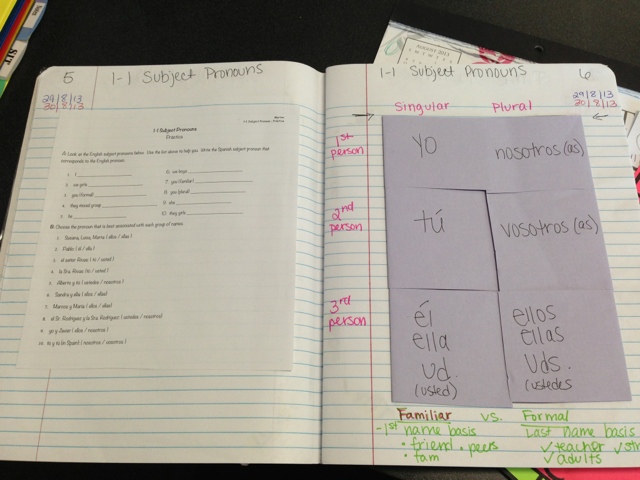 5
1-1 Subject Pronouns
29/8/13
30/8/13
1-1 Subject Pronouns
Practice
A. Look at the English subject pronouns below. Use the list above to help you. Write the Spanish subject pronoun that
corresponds to the English pronoun.
1. I
2. we girls
3. you (formal)
4. they mixed group
5. he
6. we boys
7. you (familiar)
8. you (plural)
9. she
10. they girls
B. Choose the pronoun that is best associated with each group of names.
1. Susana, Luisa, María ( ellos / ellas )
2. Pablo ( él / ella )
3. el señor Rivas ( tú / usted )
4. la Sra. Rivas (tú / usted )
5. Alberto y tú ( ustedes / nosotros )
6. Sandra y ella ( ellos / ellas)
7. Marcos y María ( ellos / ellas)
8. el Sr. Rodríguez y la Sra. Rodríguez ( ustedes / nosotros)
9. yo y Javier ( ellos / nosotros )
10. tú y tú (in Spain) ( nosotros / vosotros )
1-1 Subject Pronouns
6
29/8/13
30/8/13
Singular Plural
1st person
yo
nosotros(as)
2nd person
tú
vosotros(as)
3rd person
él
ella
Ud.
(usted)
ellos
ellas
Uds.
(ustedes
Familiar vs. Formal
-1st name basis Last name basis
• friend • peers ✓teacher
• fam ✓adults
AUGUST 2013